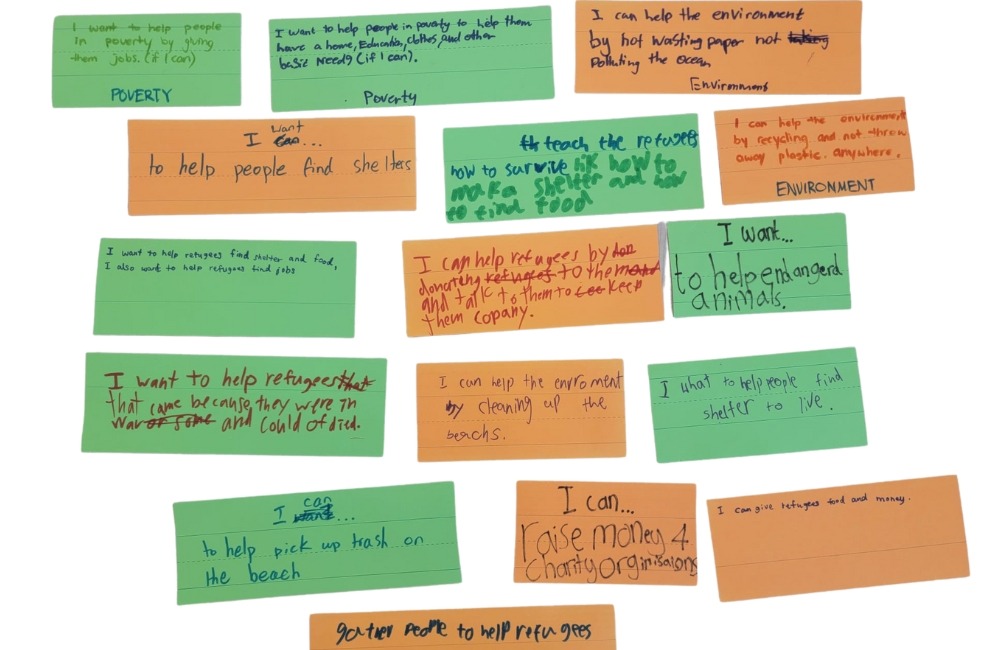 I want to help people
in poverty by giving
them jobs. (if I can)
POVERTY
I want to help people in poverty to help them
have a home, Education, clothes, and other
basic needs (if I can).
Poverty
I can help the environment
by not wasting paper not
Polluting the ocean
Environment
I want
...
to help people find shelters
teach the refugees
how to survive lik how to
maka shelter and how
to find food
I can help the environment
by recycling and not throw
away plastic. anywhere.
ENVIRONMENT
I want to help refugees find shelter and food,
I also want to help refugees find jobs
I can help refugees by
donating refugees to them
and talk to them to keep
them copany.
I want...
to help endangerd
animals.
I want to help refugees that
that came because they were in
war or some and could of died.
I can help the enviroment
by cleaning up the
beachs.
I what to help people find
shelter to live.
I can
want...
to help pick up trash on
the beach
I can...
raise money 4
charity orginisaions
I can give refugees food and money.
gather people to help refugees